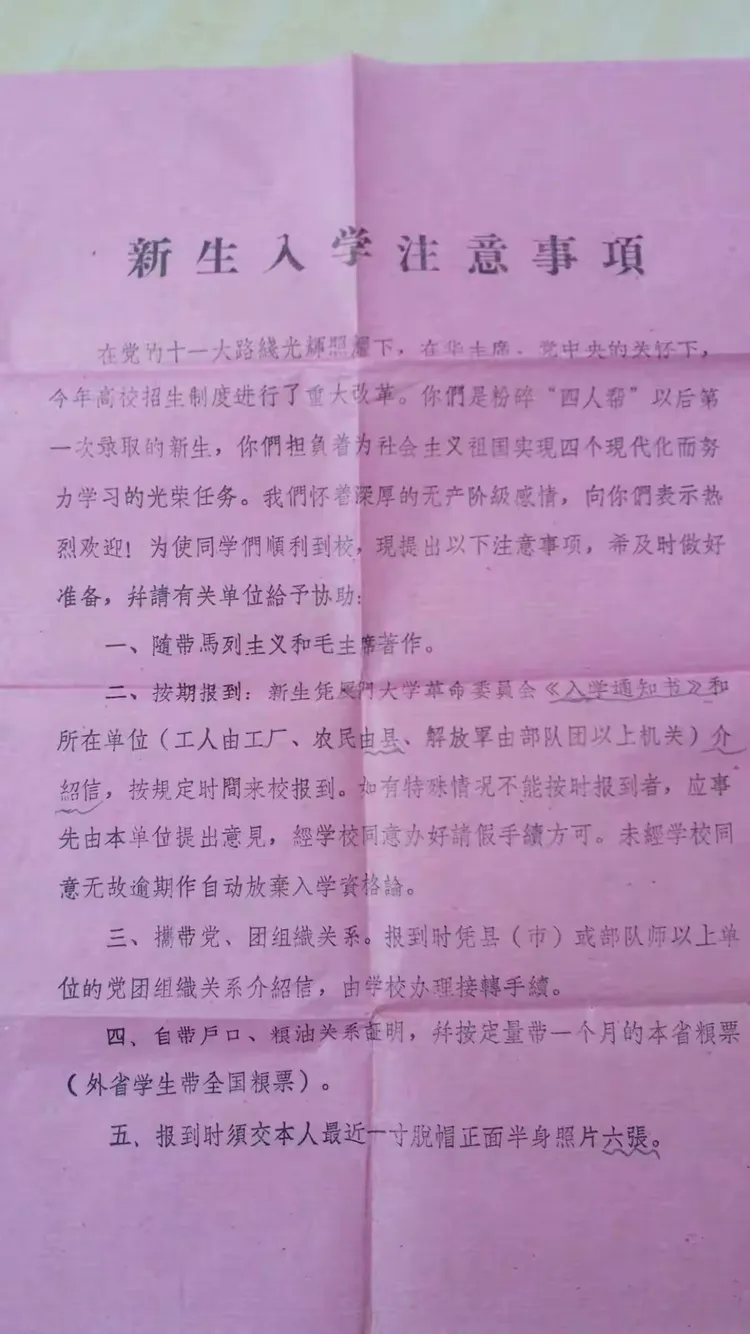 新生入学注意事項
在党的十一大路綫光輝照耀下，在华主席、党中央的关怀下，
今年高校招生制度进行了重大改革。你們是粉碎“四人帮”以后第
一次录取的新生，你們担負着为社会主义祖国实現四个現代化而努
力学习的光荣任务。我們怀着深厚的无产阶級感情，向你們表示热
烈欢迎！为使同学們順利到校，現提出以下注意事項，希及时做好
准备，幷請有关单位給予协助：
一、随带馬列主义和毛主席著作。
二、按期报到：新生凭厦們大学革命委員会《入学通知书》和
所在单位（工人由工厂、农民由县、解放軍由部队团以上机关）介
紹信，按規定时間来校报到。如有特殊情况不能按时报到者，应事
先由本单位提出意見，經学校同意办好請假手續方可。未經学校同
意无故逾期作自动放棄入学資格論。
三、攜带党、团组織关系。报到时凭县（市）或部队师以上单
位的党团组織关系介紹信，由学校办理接轉手續。
四、自带戶口、粮油关系証明，幷按定量带一个月的本省粮票
（外省学生带全国粮票）。
五、报到时須交本人最近一寸脫帽正面半身照片六張。